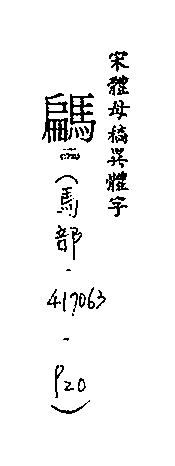 宋體母稿異體字
騗
(馬部-417063-P20)